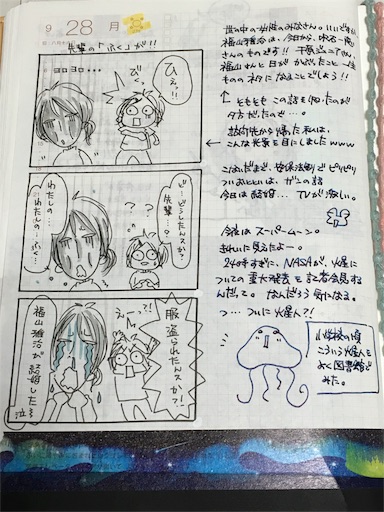 9 28 月
先輩の「ふく」が!!
ひえぇっ!!
びくっ
ど…どうしたんスか?
先輩…
???
わたしの…
…わたしの…ふく…
服盗られたんスか?!
えー?!
福山雅治が結婚した(泣)
世の中の女性のみなさん。いいですか
福山雅治は、今日から、吹石一恵
さんのものです!! 千原ジュニアは、
福山さんと日がかぶったこと一生
もののネタになることでしょう!!
↑ そもそもこの話を知ったのが
夕方だったので…。
訪問先から帰った私は、
← こんな光景を目にしましたwww
こないだまで、安保法制でピリピリ
ついおとといは、ガンの話
今日は結婚…TVが激しい。
今夜はスーパームーン。
きれいに見えたよー。
24:00すぎに、NASAが、火星に
ついての重大発表を記者会見する
んだって。なんだろう気になる。
つ…ついに火星人?!
小学校の頃
こういう火星人を
よく図書館で
みた。